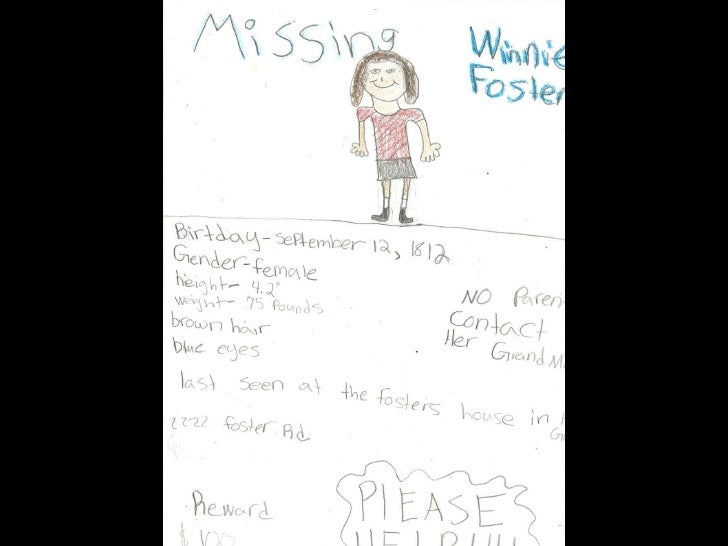 Missing
Winnie
Foster
Birtday - September 12, 1812
Gender - female
height - 4.2"
weight - 75 Pounds
brown hair
blue eyes
NO Paren
Contact
Her GrandM
last seen at the fosters house in
2222 foster Rd
Reward
$100
PlEASE
HELP!!!